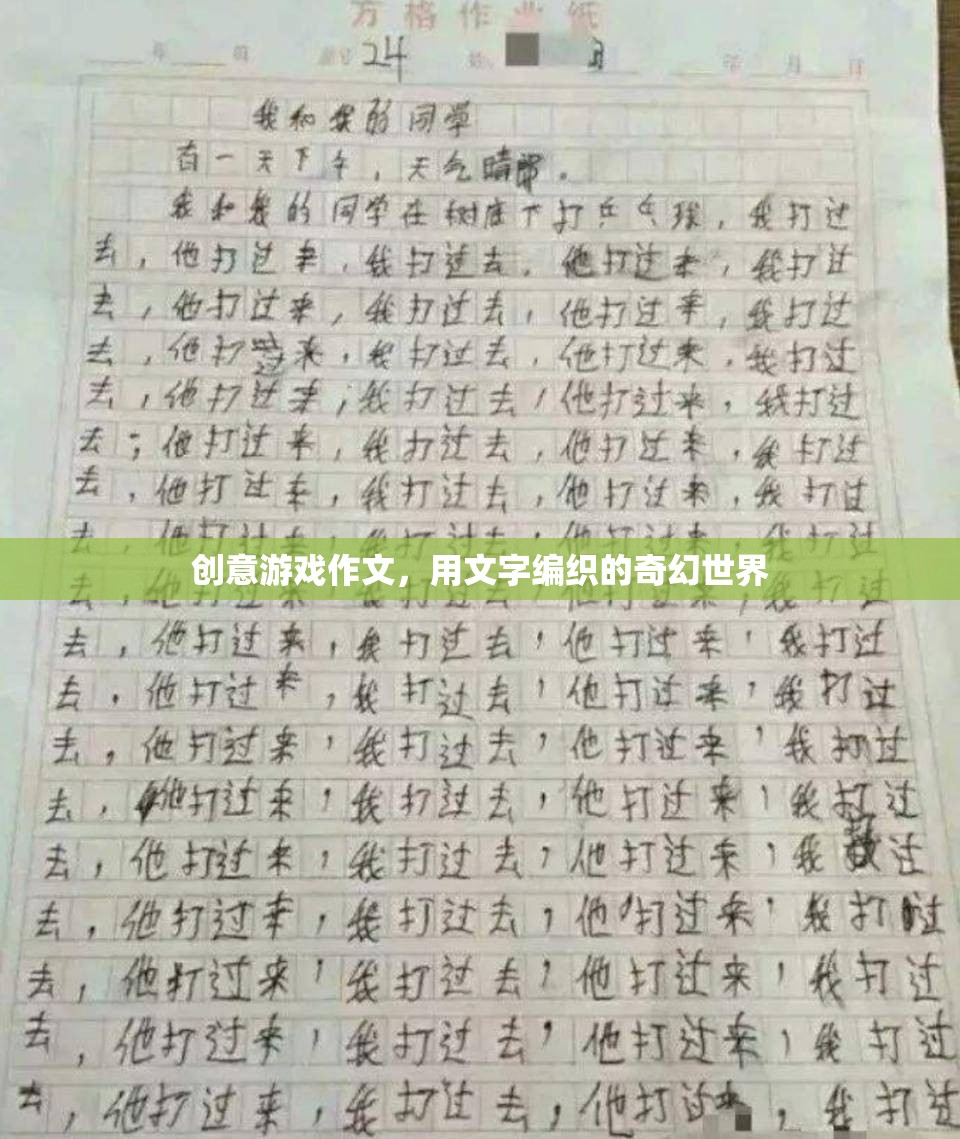 方格作业纸
年 月 24 3 年 月 日
我和我的同学
有一天下午,天气晴朗。
我和我的同学在树底下打乒乓球,我打过
去,他打过来,我打过去,他打过来,我打过
去,他打过来,我打过去,他打过来,我打过
去,他打过来,我打过去,他打过来,我打过
去,他打过来;我打过去,他打过来,我打过
去;他打过来,我打过去,他打过来,我打过
去,他打过来,我打过去,他打过来,我打过
去,他打过来,我打过去,他打过来,我打过
创意游戏作文,用文字编织的奇幻世界
去,他打过来,我打过去,他打过来,我打过
去,他打过来,我打过去,他打过来,我打过
去,他打过来,我打过去,他打过来,我打过
去,他打过来,我打过去,他打过来,我打过
去,他打过来,我打过去,他打过来,我打过
去,他打过来,我打过去,他打过来,我过
去,他打过来,我打过去,他打过来,我打过
去,他打过来,我打过去,他打过来,我打过
去,他打过来,我打过去,他打过来,我打过
去,他打过来,我打过去,他打过来,我打过